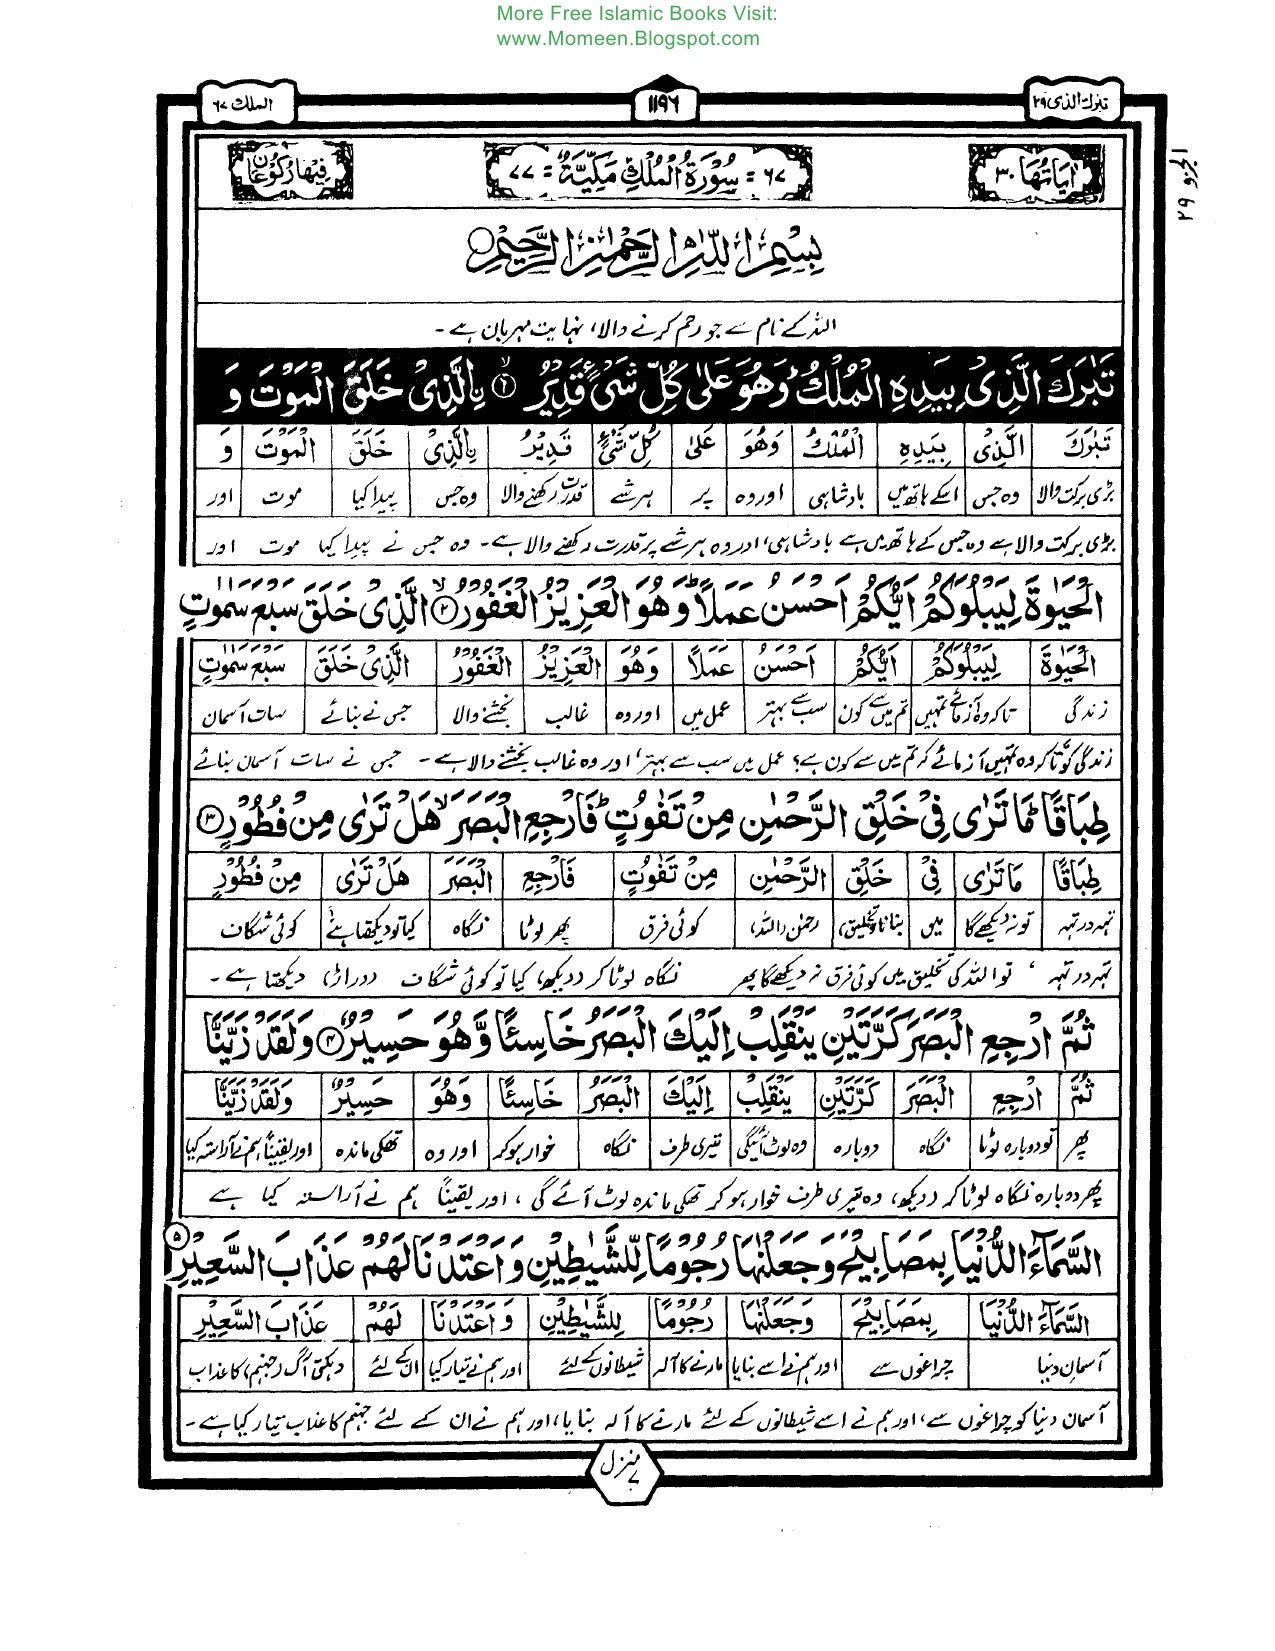 More Free Islamic Books Visit:
www.Momeen.Blogspot.com
تبٰرك الذى ۲۹ ۱۱۹۶ الملك ۶۷
الجزو ۲۹
اٰيَاتُهَا ۳۰ ۶۷ = سُوْرَةُ الْمُلْكِ مَكِّيَّةٌ = ۷۷ فِيْهَا رُكُوْعَانِ
بِسْمِ اللّٰهِ الرَّحْمٰنِ الرَّحِيْمِ ۱
اللہ کے نام سے جو رحم کرنے والا، نہایت مہربان ہے۔
تَبٰرَكَ الَّذِىْ بِيَدِهِ الْمُلْكُ وَهُوَ عَلٰى كُلِّ شَىْءٍ قَدِيْرٌ ۙ ۲ ۨالَّذِىْ خَلَقَ الْمَوْتَ وَ
تَبٰرَكَ الَّذِىْ بِيَدِهِ الْمُلْكُ وَهُوَ عَلٰى كُلِّ شَىْءٍ قَدِيْرٌ ۨالَّذِىْ خَلَقَ الْمَوْتَ وَ
بڑی برکت والا وہ جس اسکے ہاتھ میں بادشاہی اور وہ پر ہر شے قدرت رکھنے والا وہ جس پیدا کیا موت اور
بڑی برکت والا ہے وہ جس کے ہاتھ میں ہے بادشاہی، اور وہ ہر شے پر قدرت رکھنے والا ہے۔ وہ جس نے پیدا کیا موت اور
الْحَيٰوةَ لِيَبْلُوَكُمْ اَيُّكُمْ اَحْسَنُ عَمَلًا ؕ وَهُوَ الْعَزِيْزُ الْغَفُوْرُ ۙ ۲ الَّذِىْ خَلَقَ سَبْعَ سَمٰوٰتٍ
الْحَيٰوةَ لِيَبْلُوَكُمْ اَيُّكُمْ اَحْسَنُ عَمَلًا وَهُوَ الْعَزِيْزُ الْغَفُوْرُ الَّذِىْ خَلَقَ سَبْعَ سَمٰوٰتٍ
زندگی تاکہ وہ آزمائے تمہیں تم میں سے کون سب سے بہتر عمل میں اور وہ غالب بخشنے والا جس نے بنائے سات آسمان
زندگی کو تاکہ وہ تمہیں آزمائے کہ تم میں سے کون ہے؟ عمل میں سب سے بہتر، اور وہ غالب بخشنے والا ہے۔ جس نے سات آسمان بنائے
طِبَاقًا ؕ مَا تَرٰى فِىْ خَلْقِ الرَّحْمٰنِ مِنْ تَفٰوُتٍ ؕ فَارْجِعِ الْبَصَرَ ۙ هَلْ تَرٰى مِنْ فُطُوْرٍ ۳
طِبَاقًا مَا تَرٰى فِىْ خَلْقِ الرَّحْمٰنِ مِنْ تَفٰوُتٍ فَارْجِعِ الْبَصَرَ هَلْ تَرٰى مِنْ فُطُوْرٍ
تہہ در تہہ تو نہ دیکھے گا میں بنانا (تخلیق) رحمٰن (اللہ) کوئی فرق پھر لوٹا نگاہ کیا تو دیکھتا ہے کوئی شگاف
تہہ در تہہ ، تو اللہ کی تخلیق میں کوئی فرق نہ دیکھے گا پھر نگاہ لوٹا کر (دیکھ) کیا تو کوئی شگاف (دراڑ) دیکھتا ہے۔
ثُمَّ ارْجِعِ الْبَصَرَ كَرَّتَيْنِ يَنْقَلِبْ اِلَيْكَ الْبَصَرُ خَاسِئًا وَّهُوَ حَسِيْرٌ ۴ وَلَقَدْ زَيَّنَّا
ثُمَّ ارْجِعِ الْبَصَرَ كَرَّتَيْنِ يَنْقَلِبْ اِلَيْكَ الْبَصَرُ خَاسِئًا وَهُوَ حَسِيْرٌ وَلَقَدْ زَيَّنَّا
پھر تو دوبارہ لوٹا نگاہ دوبارہ وہ لوٹ آئیگی تیری طرف نگاہ خوار ہو کر اور وہ تھکی ماندہ اور یقیناً ہم نے آراستہ کیا
پھر دوبارہ نگاہ لوٹا کر (دیکھ) وہ تیری طرف خوار ہو کر تھکی ماندہ لوٹ آئے گی ، اور یقیناً ہم نے آراستہ کیا ہے
السَّمَآءَ الدُّنْيَا بِمَصَابِيْحَ وَجَعَلْنٰهَا رُجُوْمًا لِّلشَّيٰطِيْنِ وَاَعْتَدْنَا لَهُمْ عَذَابَ السَّعِيْرِ ۵
السَّمَآءَ الدُّنْيَا بِمَصَابِيْحَ وَجَعَلْنٰهَا رُجُوْمًا لِلشَّيٰطِيْنِ وَاَعْتَدْنَا لَهُمْ عَذَابَ السَّعِيْرِ
آسمانِ دنیا چراغوں سے اور ہم نے اسے بنایا مارنے کا آلہ شیطانوں کے لئے اور ہم نے تیار کیا ان کے لئے دہکتی آگ (جہنم) کا عذاب
آسمان دنیا کو چراغوں سے، اور ہم نے اسے شیطانوں کے لئے مارنے کا آلہ بنایا، اور ہم نے ان کے لئے جہنم کا عذاب تیار کیا ہے۔
منزل ۷